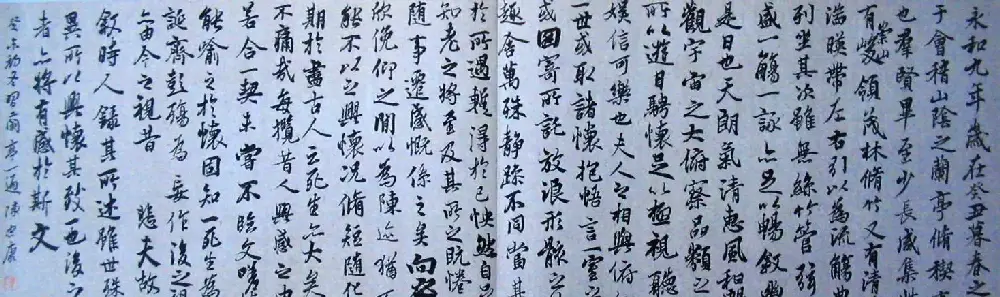 永和九年歲在癸丑暮春之
于會稽山陰之蘭亭脩禊
也羣賢畢至少長咸集
有崇山峻領茂林脩竹又有清
湍暎帶左右引以為流觴曲
列坐其次雖無絲竹管弦
盛一觴一詠亦足以暢敘幽
是日也天朗氣清惠風和暢
觀宇宙之大俯察品類之
所以遊目騁懷足以極視聽
娛信可樂也夫人之相與俯
一世或取諸懷抱悟言一室之
或因寄所託放浪形骸之
趣舍萬殊靜躁不同當其
於所遇蹔得於己怏然自
知老之將至及其所之既惓
隨事遷感慨係之矣向之
欣俛仰之閒以為陳迹猶
能不以之興懷況脩短隨化
期於盡古人云死生亦大矣
不痛哉每攬昔人興感之由
若合一契未嘗不臨文嗟
能喻之於懷固知一死生為
誕齊彭殤為妄作後之視
亦由今之視昔 悲夫故
敘時人錄其所述雖世殊
異所以興懷其致一也後之
者亦將有感於斯文
癸未初冬習蘭亭一過 陳忠康